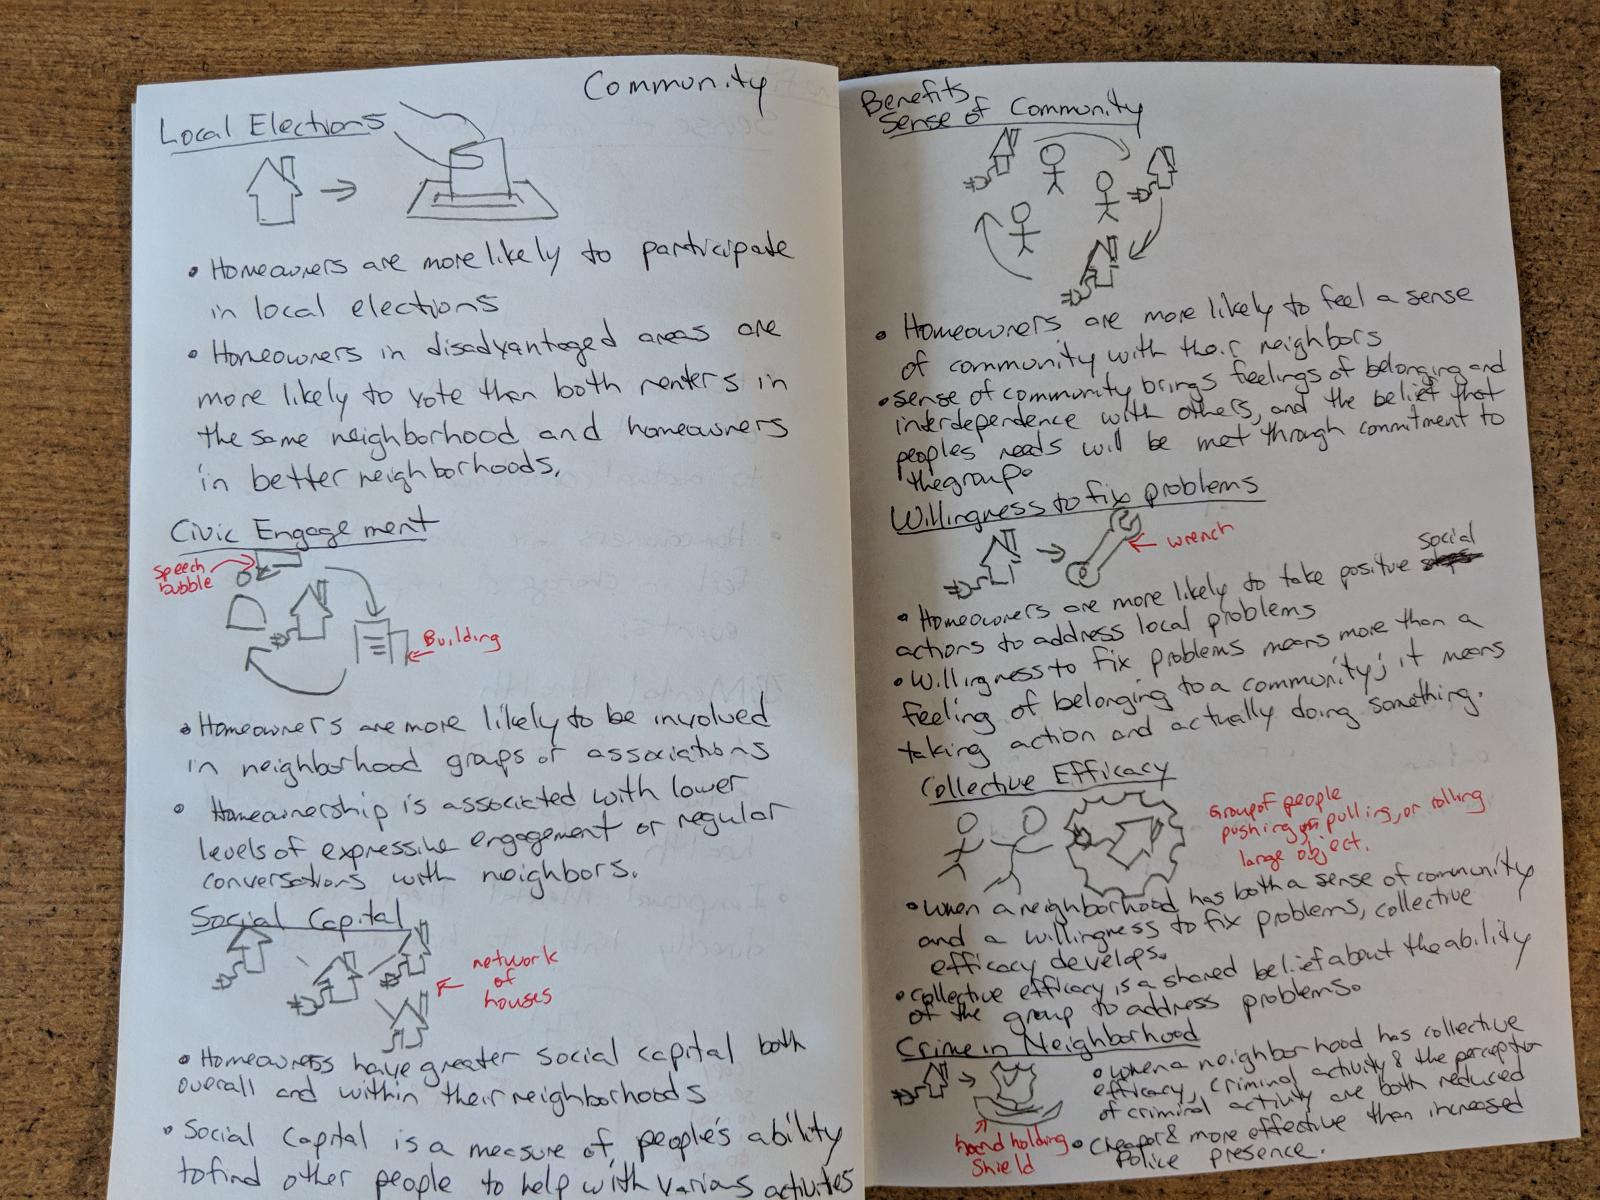 Community
Local Elections
• Homeowners are more likely to participate
in local elections
• Homeowners in disadvantaged areas are
more likely to vote than both renters in
the same neighborhood and homeowners
in better neighborhoods.
Civic Engagement
speech
bubble
Building
• Homeowners are more likely to be involved
in neighborhood groups or associations
• Homeownership is associated with lower
levels of expressive engagement or regular
conversations with neighbors.
Social Capital
network
of
houses
• Homeowners have greater social capital both
overall and within their neighborhoods
• Social Capital is a measure of people's ability
to find other people to help with various activites
Benefits
Sense of Community
• Homeowners are more likely to feel a sense
of community with their neighbors
• sense of community brings feelings of belonging and
interdependence with others, and the belief that
peoples needs will be met through commitment to
the group.
Willingness to fix problems
wrench
social
• Homeowners are more likely to take positive
actions to address local problems
• Willingness to fix problems means more than a
feeling of belonging to a community; it means
taking action and actually doing something.
Collective Efficacy
Group of people
pushing, pulling, or rolling
large object.
• When a neighborhood has both a sense of community
and a willingness to fix problems, collective
efficacy develops.
• collective efficacy is a shared belief about the ability
of the group to address problems.
Crime in Neighborhood
• when a neighborhood has collective
efficacy, criminal activity & the perception
of criminal activity are both reduced
• Cheaper & more effective than increased
Police presence.
hand holding
Shield